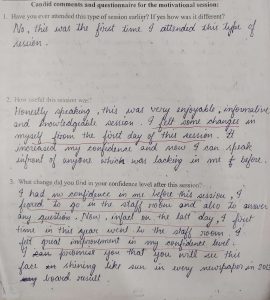 Candid comments and questionnaire for the motivational session:
1. Have you ever attended this type of session earlier? If yes how was it different?
No, this was the first time I attended this type of
session.
2. How useful this session was?
Honestly speaking, this was very enjoyable, informative
and knowledgable session. I felt some changes in
myself from the first day of this session. It
increased my confidence and now I can speak
infront of anyone which was lacking in me before.
3. What change did you find in your confidence level after this session?
I had no confidence in me before this session, I
feared to go in the staff room and also to answer
any question. Now, infact on the last day, I first
time in this year went to the staff room. I
felt great improvement in my confidence level.
I can promise you that you will see this
face shining like sun in every newspaper in 2013
board result.